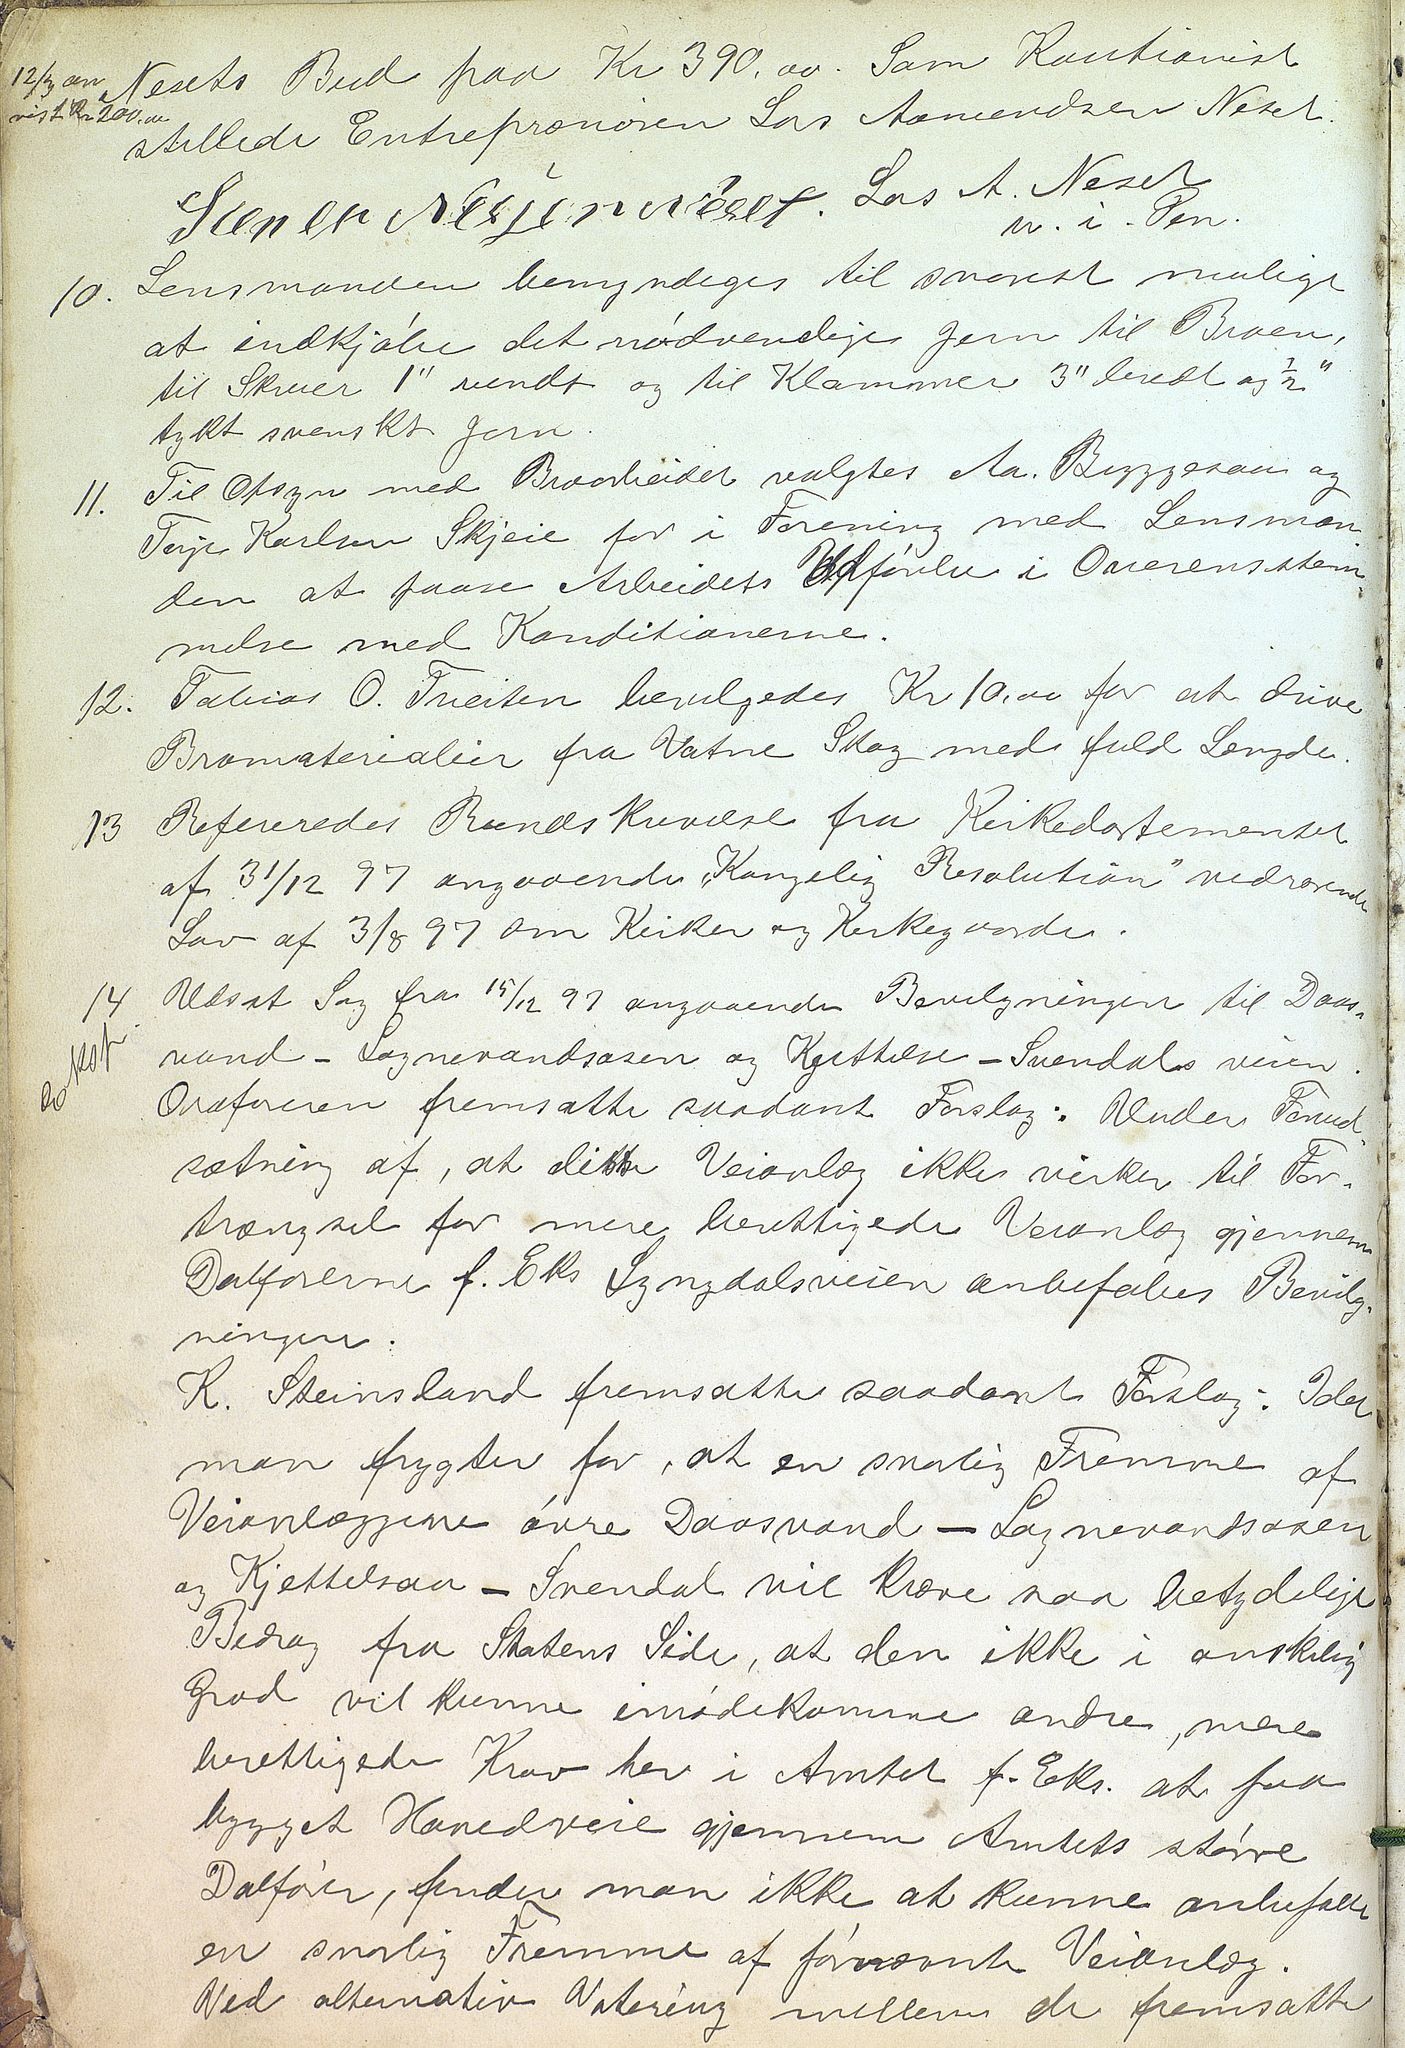 12/3 an
vist Kr 200.00
Nesets Bud paa Kr 390,00. Som Kautionist
stillede Entreprenören Lars Aanendsen Neset.
Lars A. Neset
m. i. Pen.
10. Lensmanden bemyndiges til snarest muligt
at indkjöbe det nödvendige Jern til Broen,
til Skruer 1" rundt og til Klammer 3" bredt og ½"
tykt svenskt Jern.
11. Til Opsyn med Broarbeidet valgtes Aa. Byggesaa og
Terje Karlsen Skjeie for i Forening med Lensman-
den at paase Arbeidets Udförelse i Overensstem-
melse med Konditionerne.
12. Tobias O. Tveiten bevilgedes Kr 10,00 for at drive
Bromaterialier fra Vatne Skog med fuld Længde.
13 Refereredes Rundskrivelse fra Kirkedartementet
af 31/12 97 angaaende „Kongelig Resolution" vedrørende
Lov af 3/8 97 om Kirker og Kirkegaarde.
14 Udsat Sag fra 15/12 97 angaaende Bevilgningen til Daas-
vand - Lognevandsaasen og Kjettelsa - Svendals veien.
Ordføreren fremsatte saadant Forslag: Under Forud-
sætning af, at dette Veianlæg ikke virker til For-
trængsel for mere berettigede Veianlæg gjennem
Dalførerne f. Eks Lyngdalsveien anbefales Bevilg-
ningen.
K. Steinsland fremsatte saadant Forslag: Idet
man frygter for, at en snarlig Fremme af
Veianlæggene övre Daasvand - Lognevandsaasen
og Kjettelsaa - Svendal vil kræve saa betydelige
Bidrag fra Statens Side, at den ikke i ønskelig
Grad vil kunne imödekomme andre, mere
berettigede Krav her i Amtet f. Eks. at faa
bygget Hovedveie gjennem Amtets större
Dalförer, finder man ikke at kunne anbefale
en snarlig Fremme af förnævnte Veianlæg.
Ved alternativ Votering mellem de fremsatte